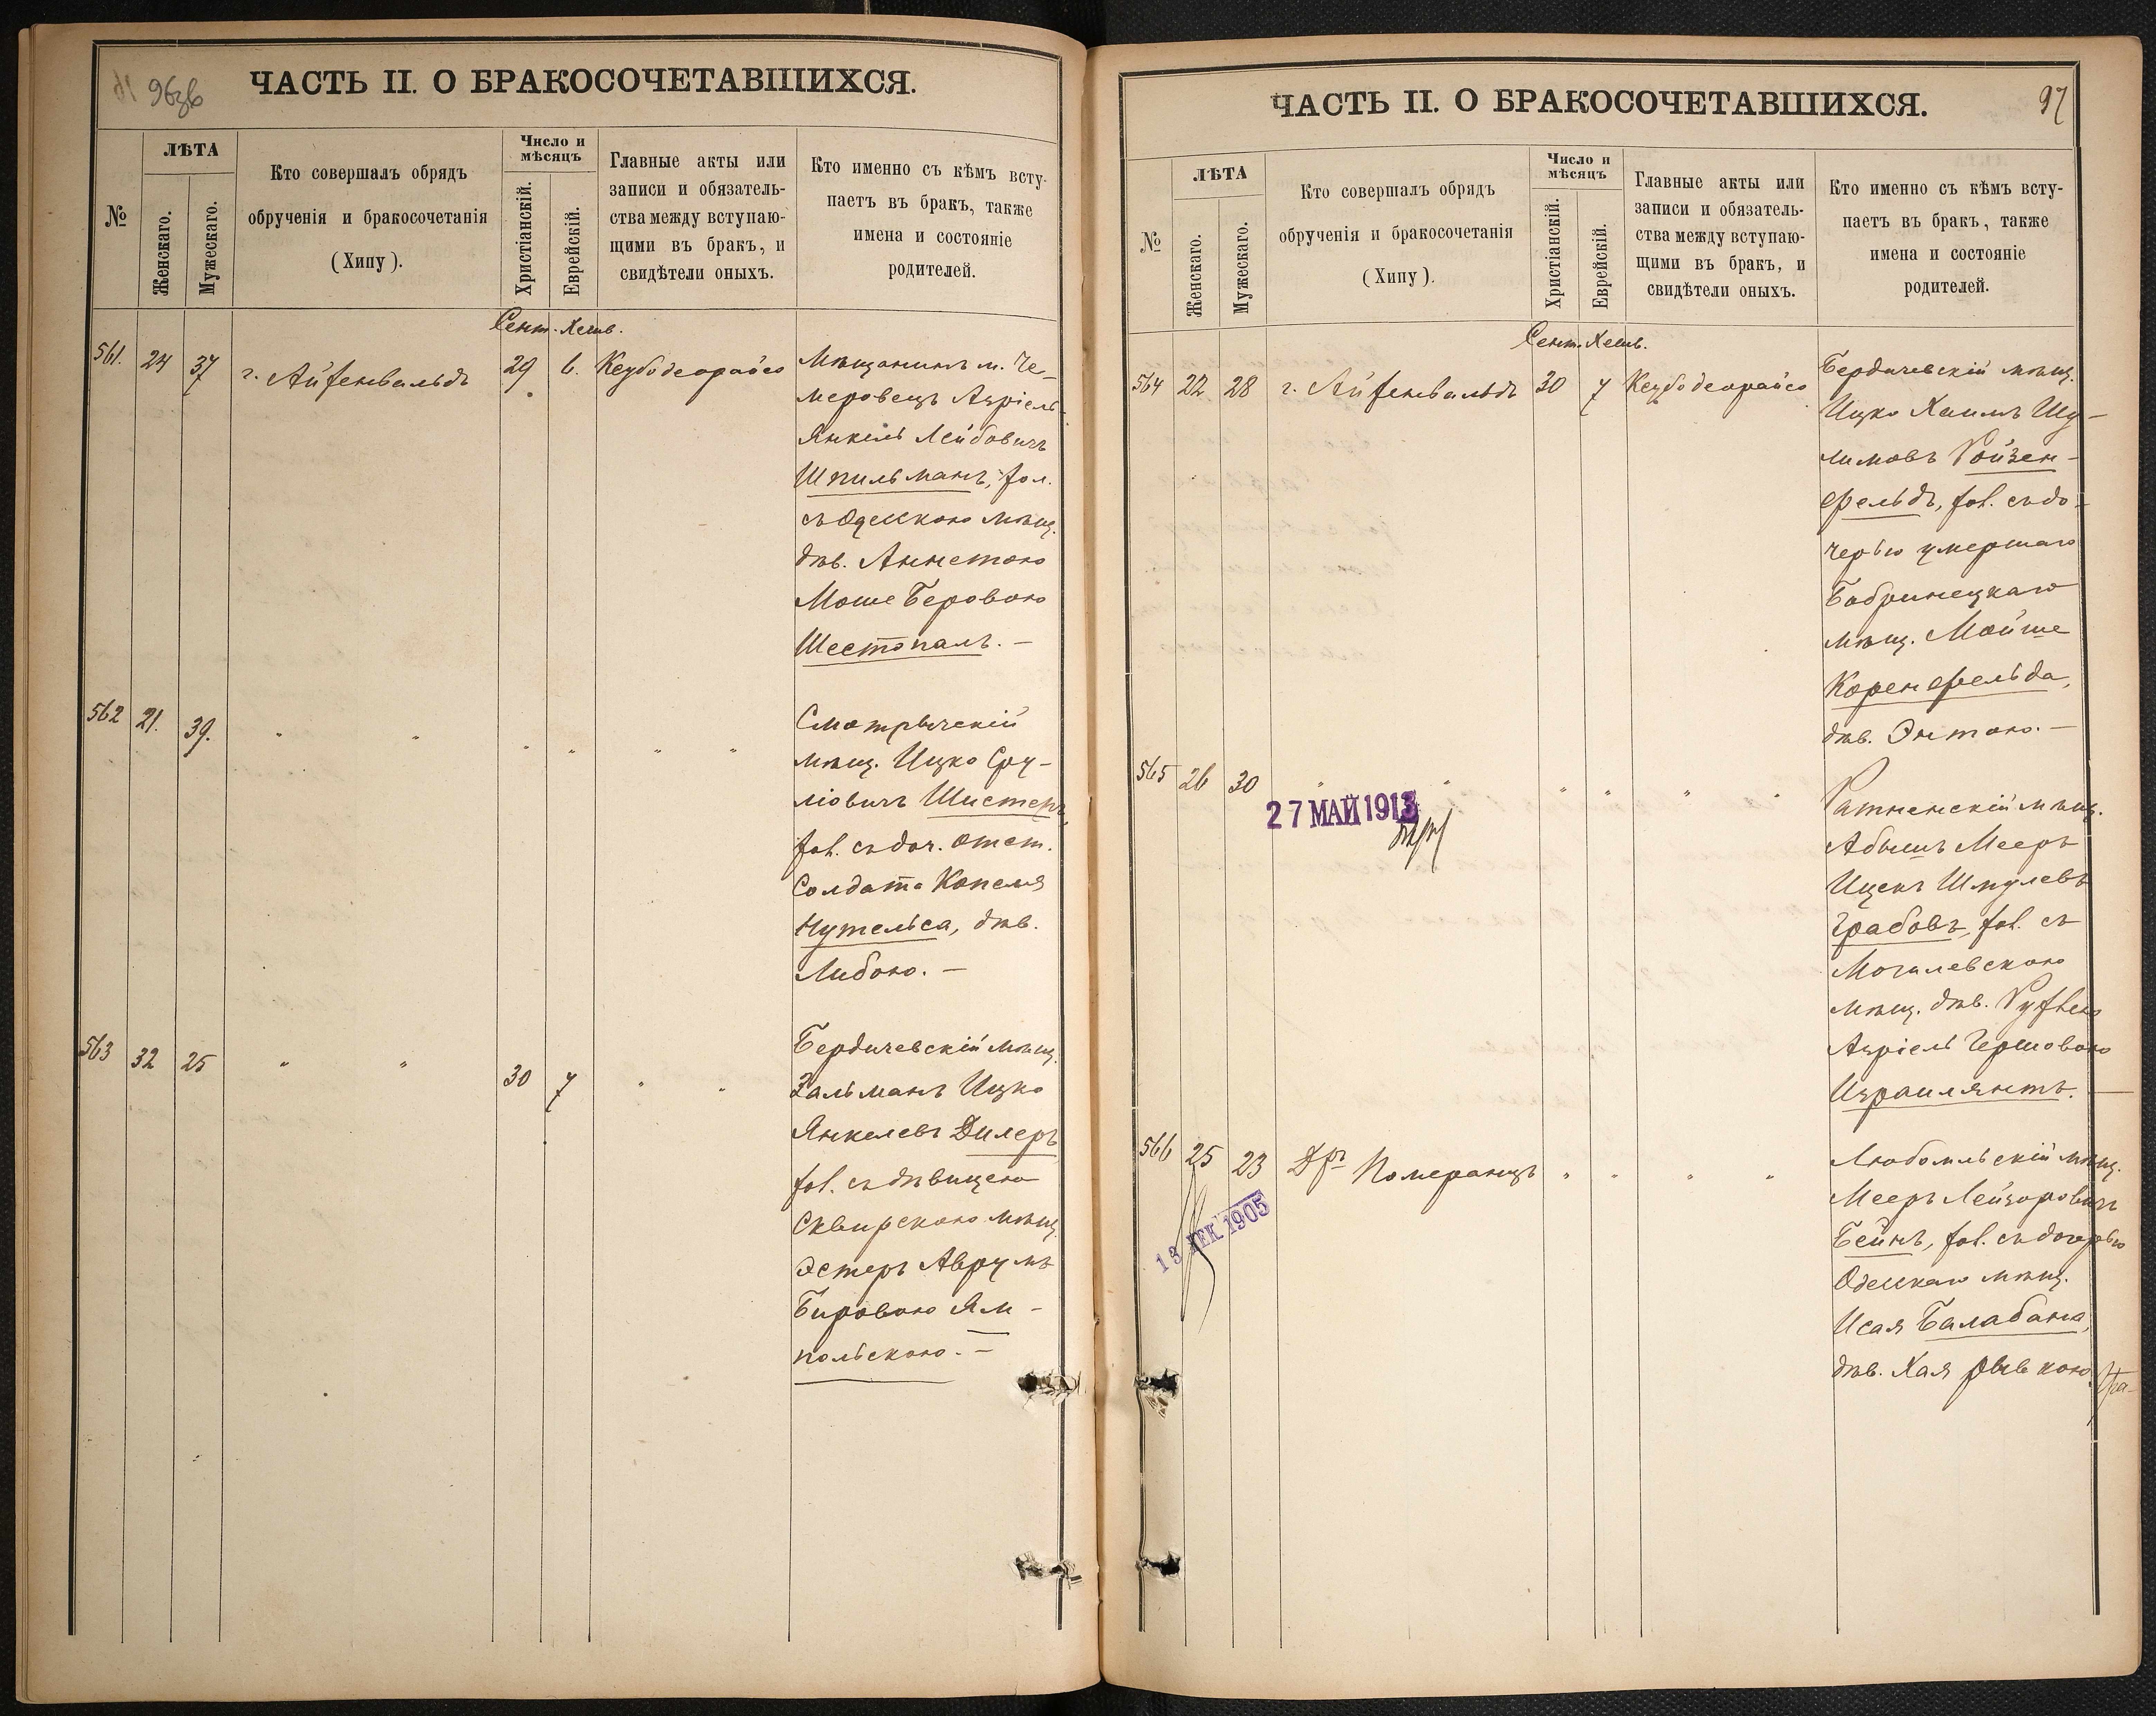 96об
ЧАСТЬ II. О БРАКОСОЧЕТАВШИХСЯ.
№
ЛѢТА
Женскаго.
Мужескаго.
Кто совершалъ обрядъ
обрученія и бракосочетанія
(Хипу).
Число и
мѣсяцъ
Христіанскій.
Еврейскій.
Главные акты или
записи и обязатель-
ства между вступаю-
щими въ бракъ, и
свидѣтели оныхъ.
Кто именно съ кѣмъ всту-
паетъ въ бракъ, также
имена и состояніе
родителей.
Сент. Хешв.
561. 24 37 г. Айзенвальдъ 29 6. Кецубо деорайсо
Мѣщанинъ м. Че-
меровецъ Азріель-
Янкель Лейбовичъ
Шпильманъ, хол.
съ Одесскою мѣщ.
дѣв. Аннетою
Моше Беровою
Шестопалъ. —
562 21. 39. " " " " " "
Смотрычскій
мѣщ. Ицко Сру-
ліовичъ Шистеръ,
хол. съ доч. отст.
Солдата Копеля
Нутельса, дѣв.
Либою. —
563 32 25 " " 30 7 " "
Бердичевскій мѣщ.
Зальманъ Ицко
Янкелевъ Дилеръ
хол. съ дѣвицею
Сквирскою мѣщ.
Эстеръ Аврумъ
Бировою Ям-
польскою. —
ЧАСТЬ II. О БРАКОСОЧЕТАВШИХСЯ.
97
№
ЛѢТА
Женскаго.
Мужескаго.
Кто совершалъ обрядъ
обрученія и бракосочетанія
(Хипу).
Число и
мѣсяцъ
Христіанскій.
Еврейскій.
Главные акты или
записи и обязатель-
ства между вступаю-
щими въ бракъ, и
свидѣтели оныхъ.
Кто именно съ кѣмъ всту-
паетъ въ бракъ, также
имена и состояніе
родителей.
Сент. Хешв.
564 22 28 г. Айзенвальдъ 30 7 Кецубо деорайсо
Бердичевскій мѣщ.
Ицко Хаимъ Шу-
лимовъ Ройзен-
фельдъ, хол. съ до-
черью умершаго
Бобринецкаго
мѣщ. Мойше
Коренфельда,
дѣв. Энтою. —
565 26 30 " " " " " "
27 МАЙ 1913
Ратненскій мѣщ.
Абышъ Мееръ
Ицекъ Шмулевъ
Грабовъ, хол. съ
Могилевскою
мѣщ. дѣв. Рухлею
Азріель Гершовою
Израилянтъ. —
566 25 23 Др. Померанцъ " " " "
13 ДЕК 1905
Любомльскій мѣщ.
Мееръ Лейзоровичъ
Бейнъ, хол. съ дочерью
Одесскаго мѣщ.
Исая Балабана,
дѣв. Хая Рывкою.